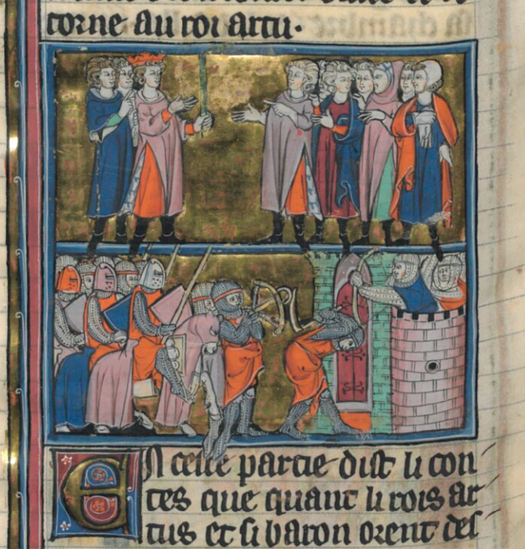 torne au roi artu.
En celle partie dist li con
tes que quant li rois ar
tus et si baron orent des